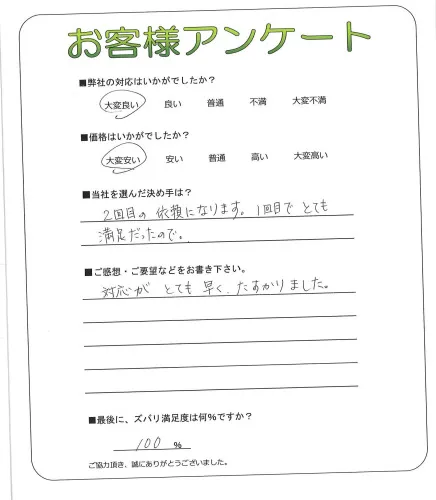 お客様アンケート
■弊社の対応はいかがでしたか？
大変良い 良い 普通 不満 大変不満
■価格はいかがでしたか？
大変安い 安い 普通 高い 大変高い
■当社を選んだ決め手は？
2回目の依頼になります。1回目でとても
満足だったので。
■ご感想・ご要望などをお書き下さい。
対応がとても早く、たすかりました。
■最後に、ズバリ満足度は何%ですか？
100 %
ご協力頂き、誠にありがとうございました。